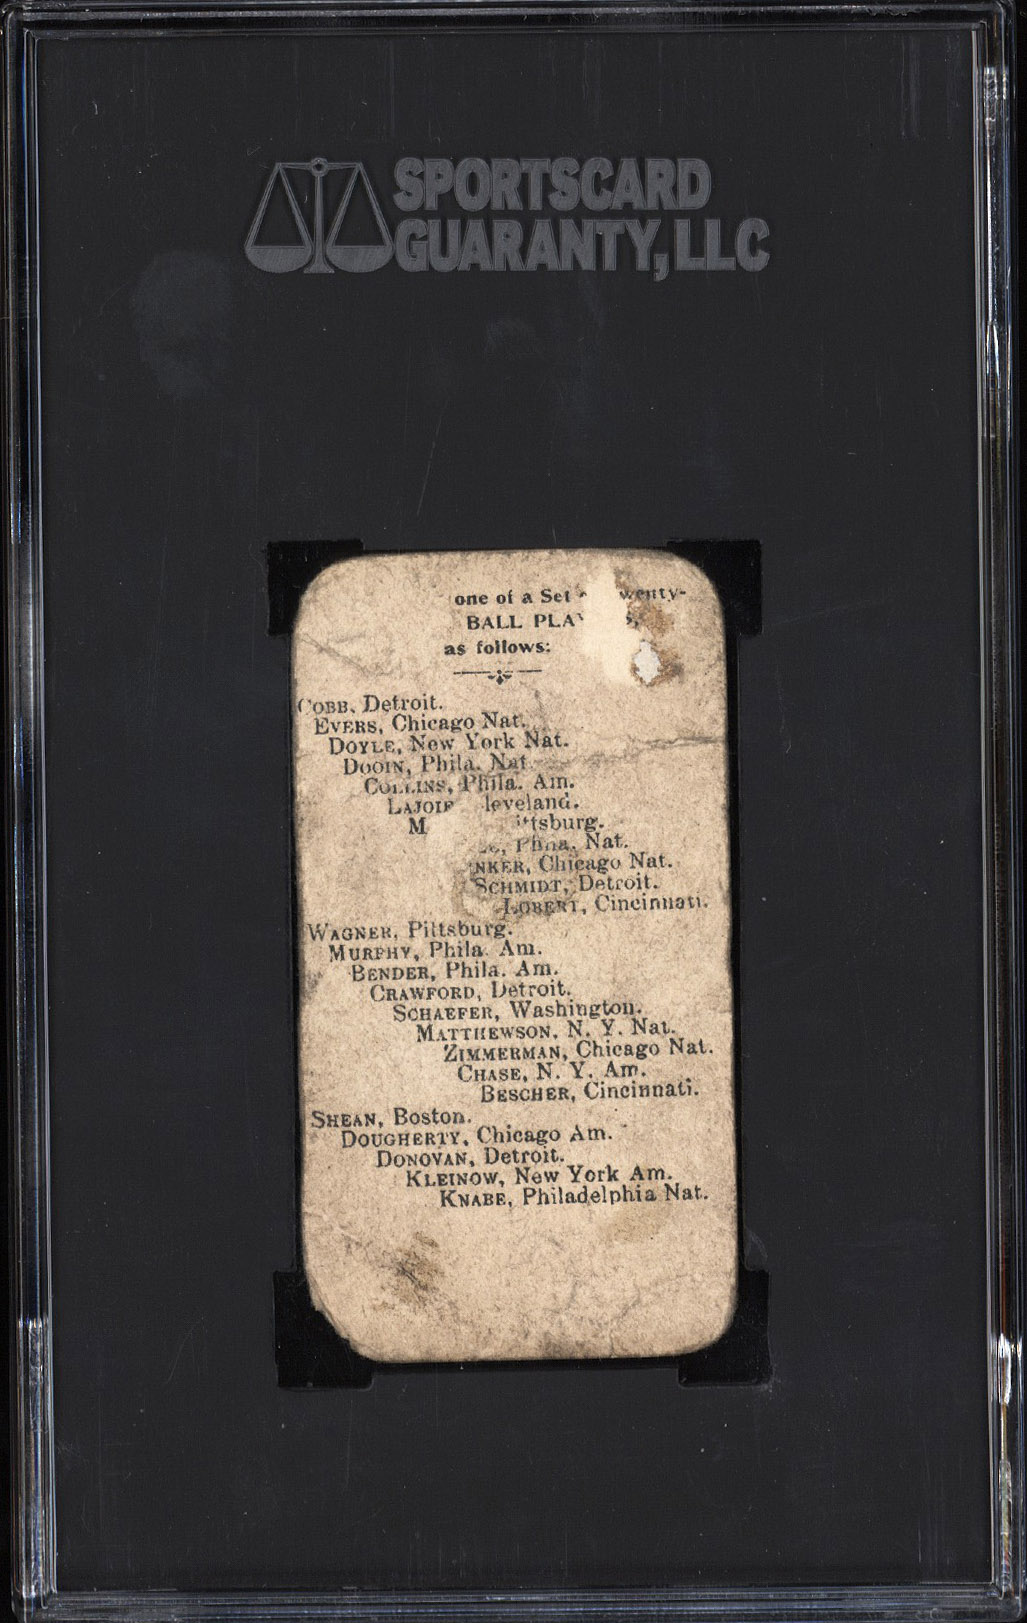 SPORTSCARD
GUARANTY, LLC
one of a Set wenty-
BALL PLA
as follows:
COBB, Detroit.
EVERS, Chicago Nat.
DOYLE, New York Nat.
DOOIN, Phila. Nat
COLLINS, Phila. Am.
LAJOIE leveland.
M ttsburg.
Phila. Nat.
NKER, Chicago Nat.
SCHMIDT, Detroit.
LOBERT, Cincinnati.
WAGNER, Pittsburg.
MURPHY, Phila. Am.
BENDER, Phila. Am.
CRAWFORD, Detroit.
SCHAEFER, Washington.
MATTHEWSON, N. Y. Nat.
ZIMMERMAN, Chicago Nat.
CHASE, N. Y. Am.
BESCHER, Cincinnati.
SHEAN, Boston.
DOUGHERTY, Chicago Am.
DONOVAN, Detroit.
KLEINOW, New York Am.
KNABE, Philadelphia Nat.